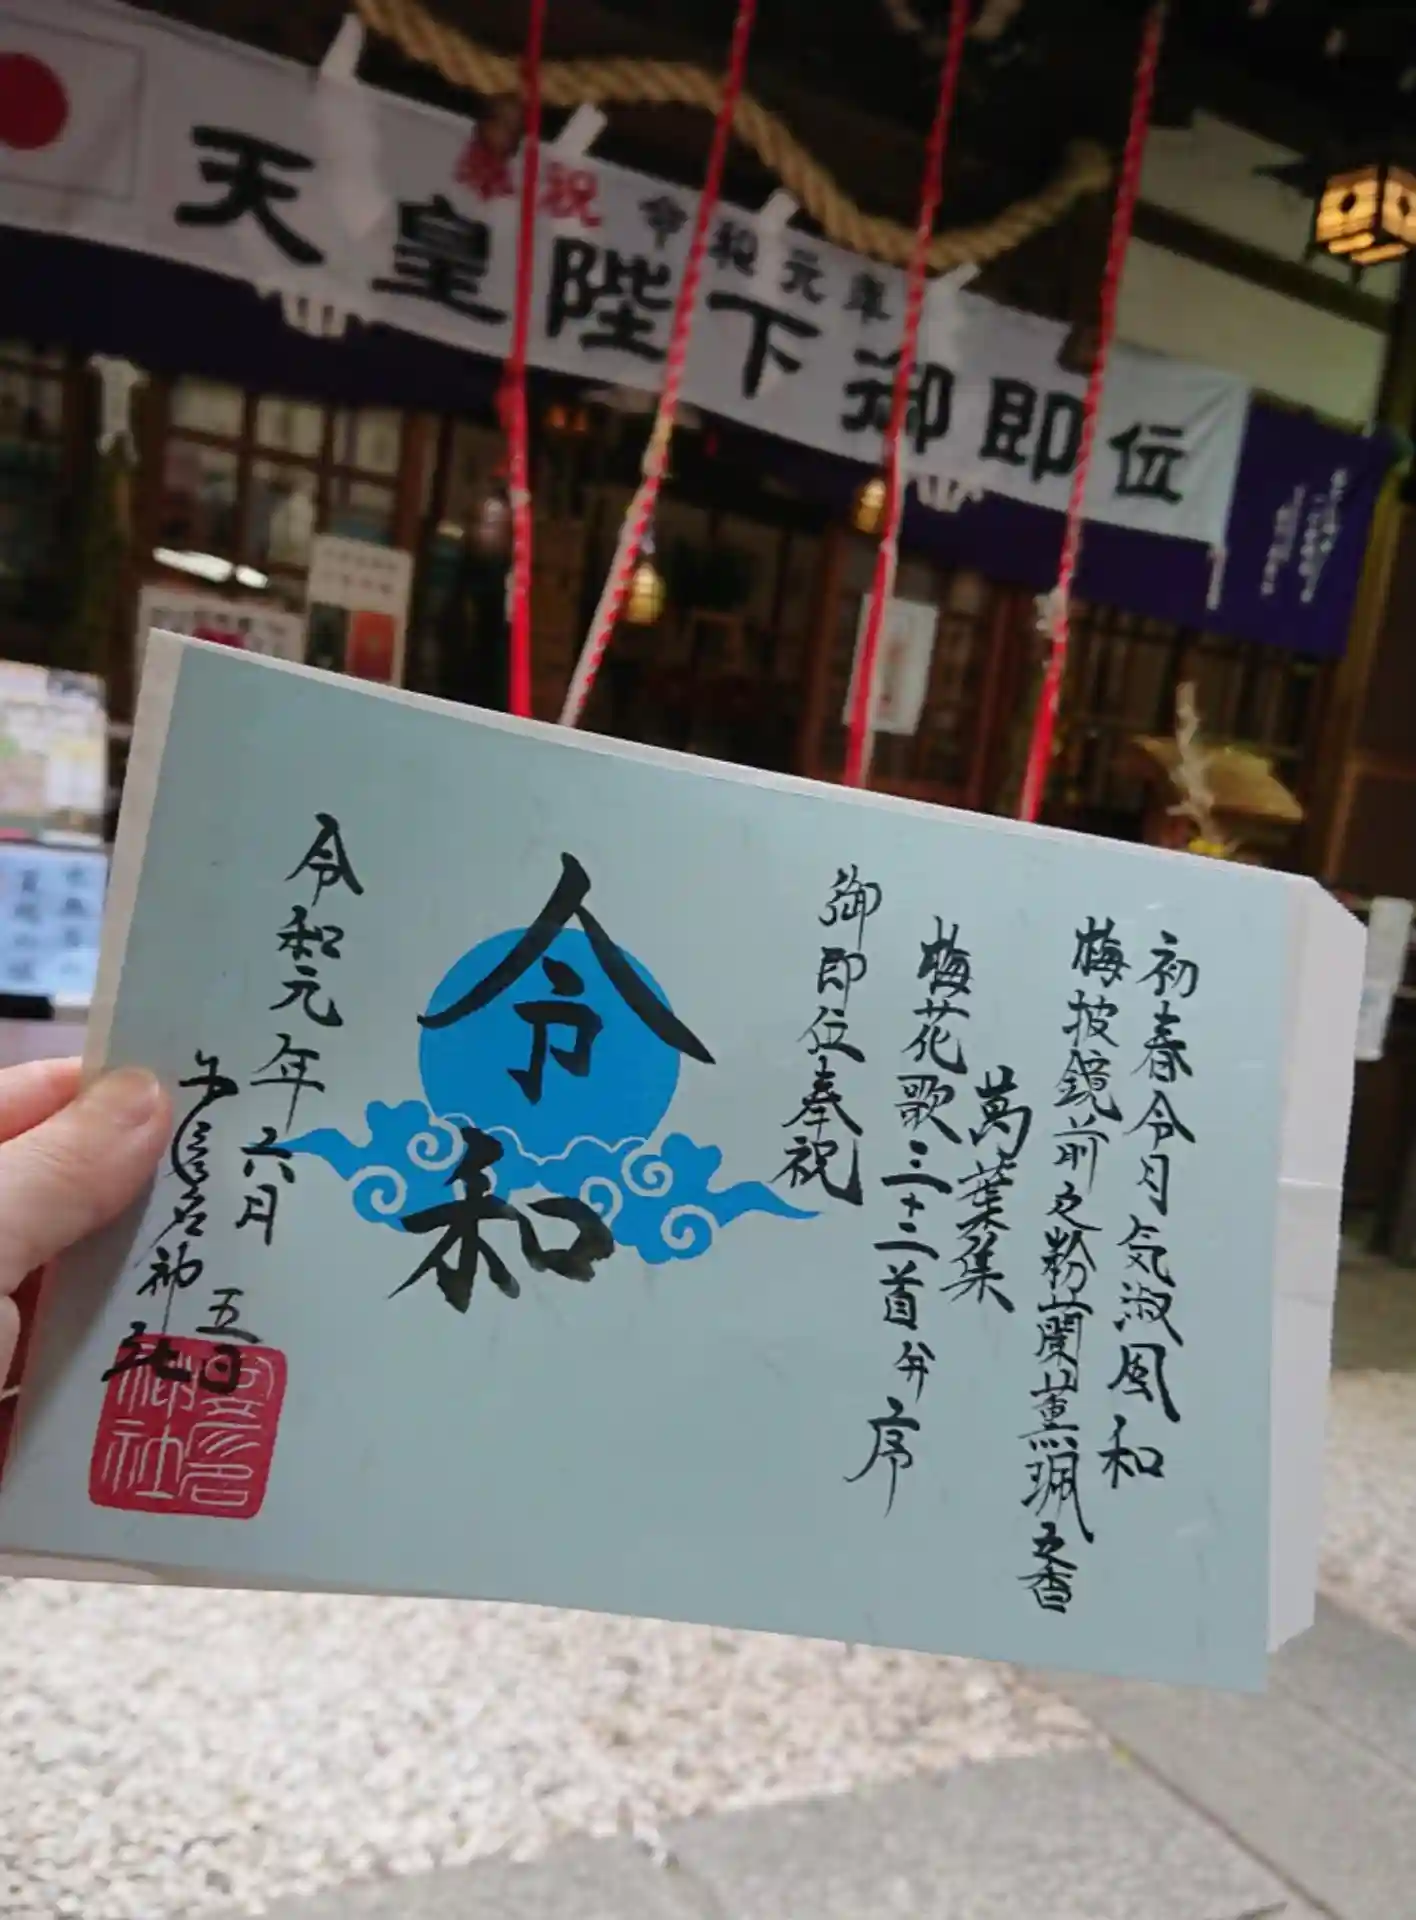 奉祝 令和元年
天皇陛下御即位
初春令月気淑風和
梅披鏡前之粉蘭薫珮之香
萬葉集
梅花歌三十二首并序
御即位奉祝
令和
令和元年六月五日
神社